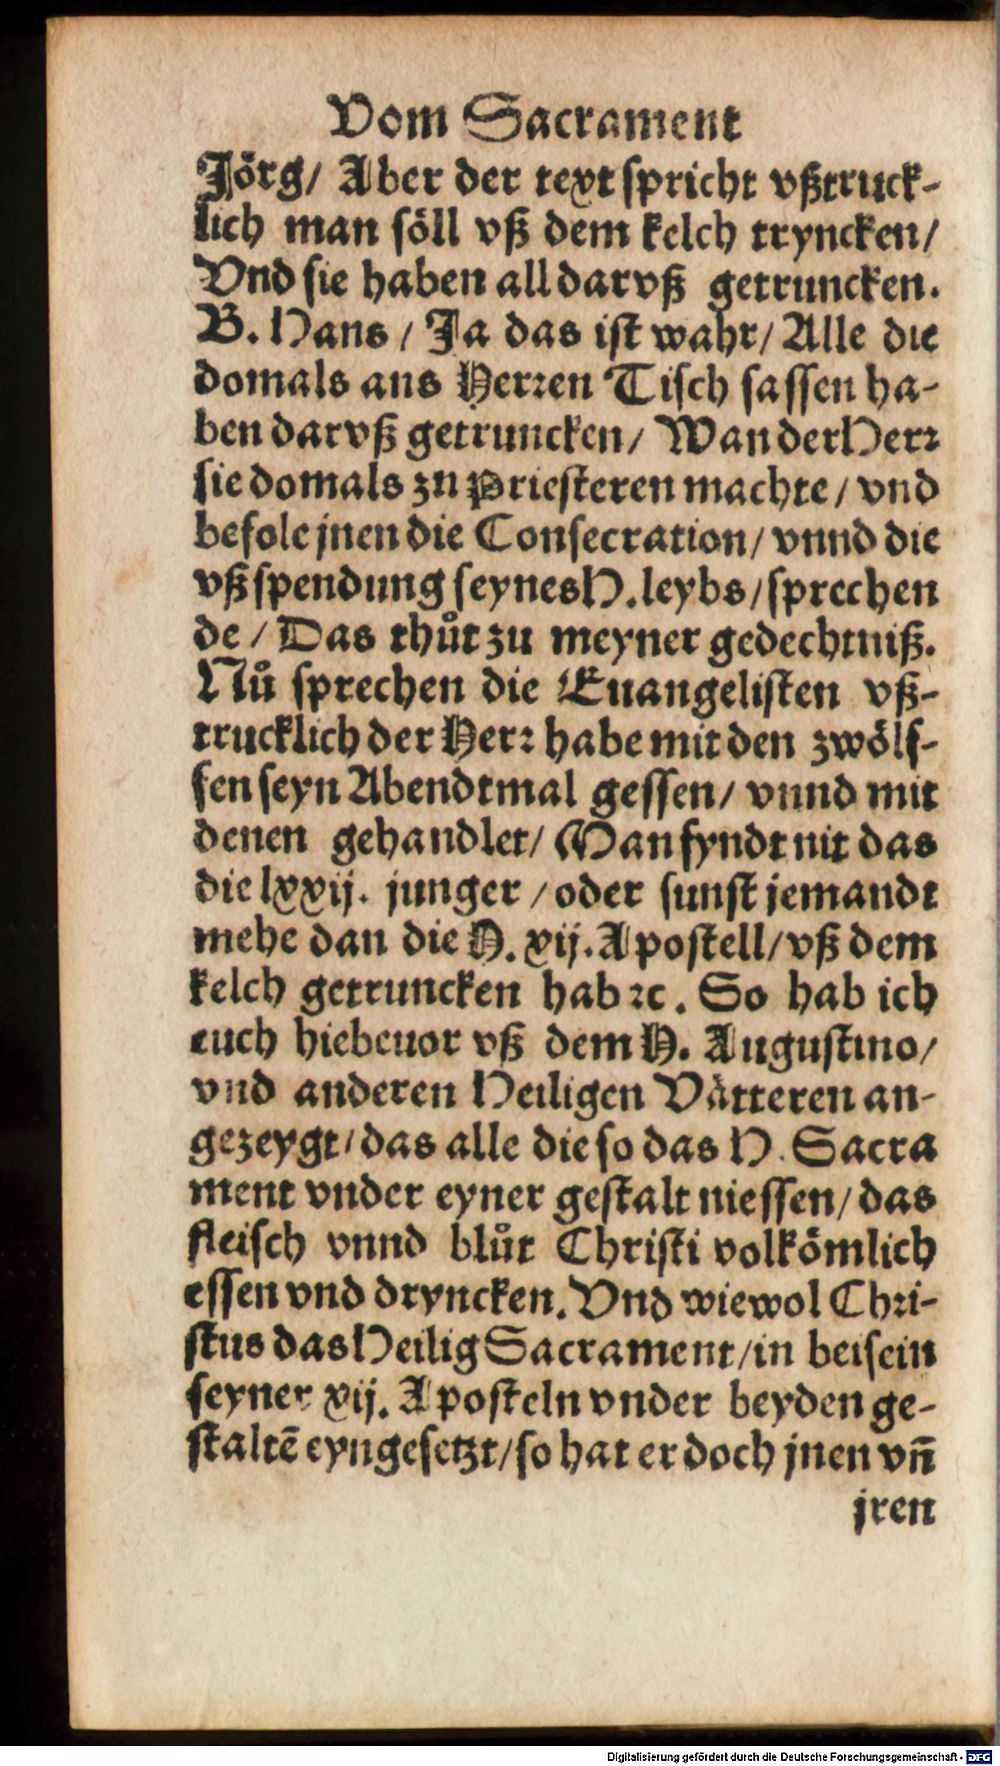 Vom Sacrament
Jörg/ Aber der text spricht vßtruck-
lich man söll vß dem kelch tryncken/
Vnd sie haben all darvß getruncken.
B. Hans / Ja das ist wahr/ Alle die
domals ans Herꝛen Tisch sassen ha-
ben darvß getruncken/ Wan der Herꝛ
sie domals zu Priesteren machte/ vnd
befole jnen die Consecration/ vnnd die
vßspendung seynes H. leybs/ sprechen
de / Das thůt zu meyner gedechtniß.
Nů sprechen die Euangelisten vß-
trucklich der Herꝛ habe mit den zwölf-
fen seyn Abendtmal gessen/ vnnd mit
denen gehandlet/ Man fyndt nit das
die lxxij. junger / oder sunst jemandt
mehe dan die H. xij. Apostell/ vß dem
kelch getruncken hab ꝛc. So hab ich
euch hiebeuor vß dem H. Augustino/
vnd anderen Heiligen Vätteren an-
gezeygt/ das alle die so das H. Sacra
ment vnder eyner gestalt niessen/ das
fleisch vnnd blůt Christi volkömlich
essen vnd dryncken. Vnd wiewol Chꝛi-
stus das Heilig Sacrament/ in beisein
seyner xij. Aposteln vnder beyden ge-
staltē eyngesetzt/ so hat er doch jnen vn̄
jren
Digitalisierung gefördert durch die Deutsche Forschungsgemeinschaft - DFG